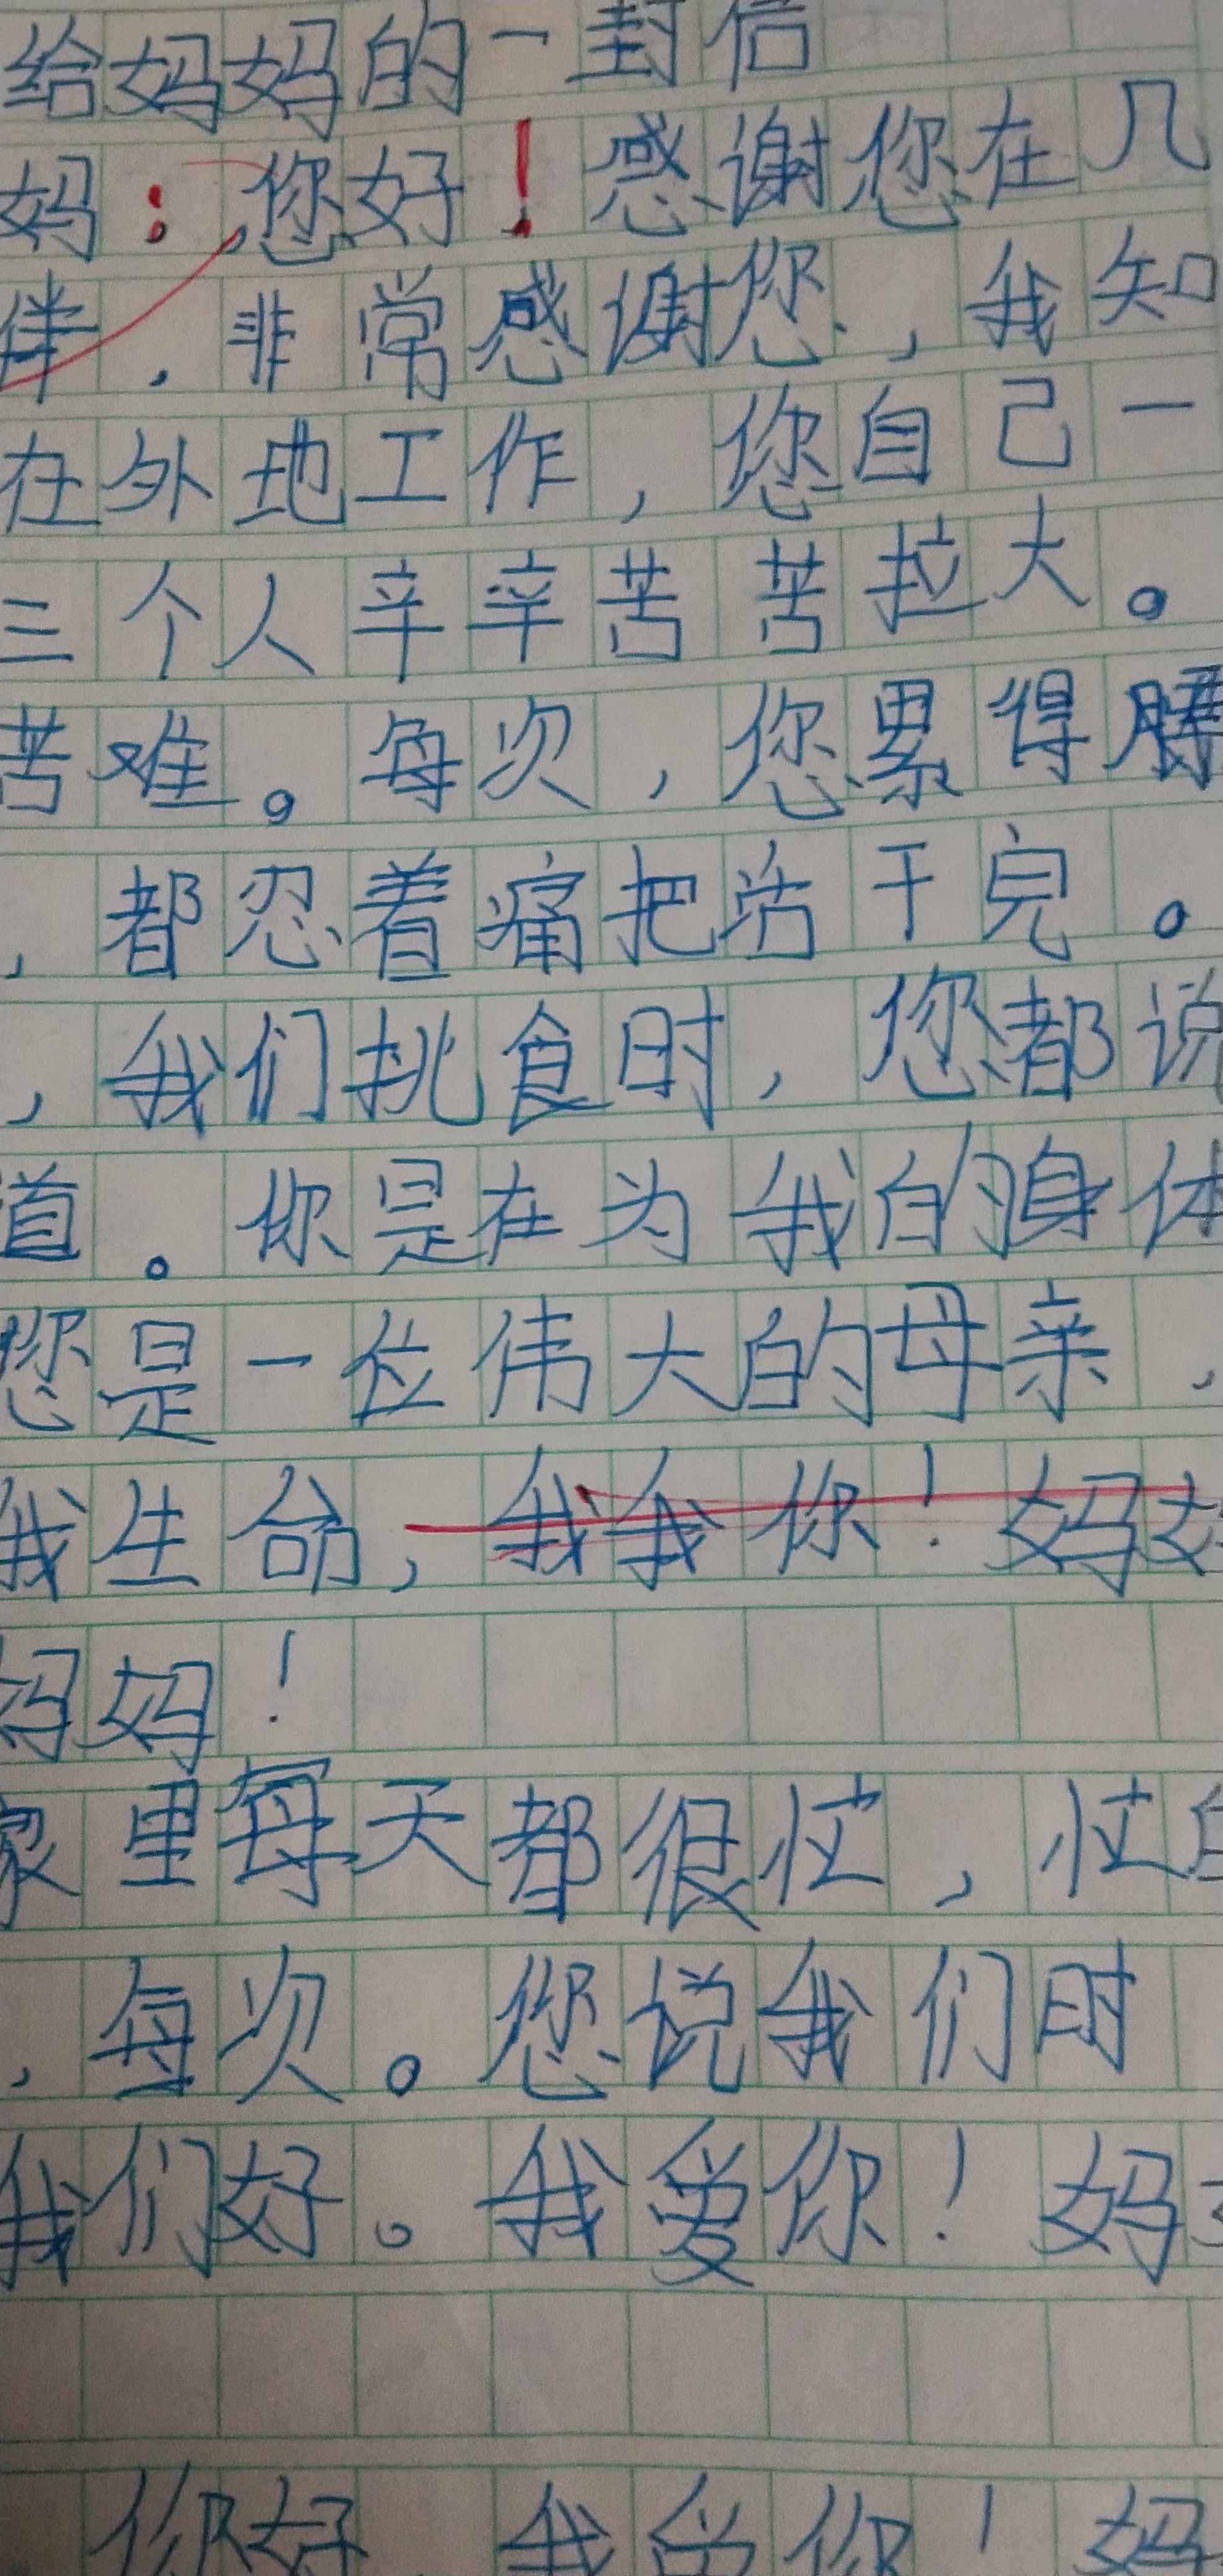 给妈妈的一封信
妈：您好！感谢您在几
伴，非常感谢您，我知
在外地工作，您自己一
三个人辛辛苦苦拉大。
苦难。每次，您累得腰
，都忍着痛把活干完。
，我们挑食时，您都说
道。你是在为我的身体
您是一位伟大的母亲，
我生命，我我你！妈
妈妈！
家里每天都很忙，忙
，每次。您说我们时
我们好。我爱你！妈
你好 我 你！妈